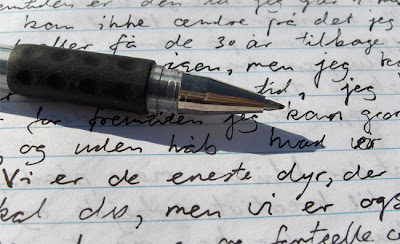 fremtiden er den tid jeg går i m
kan ikke ændre på det jeg
eller få de 30 år tilbage
igen, men jeg k
tid, jeg
for fremtiden jeg kan
og uden håb hvad er
Vi er de eneste dyr, der
skal dø, men vi er også
og fortælle o